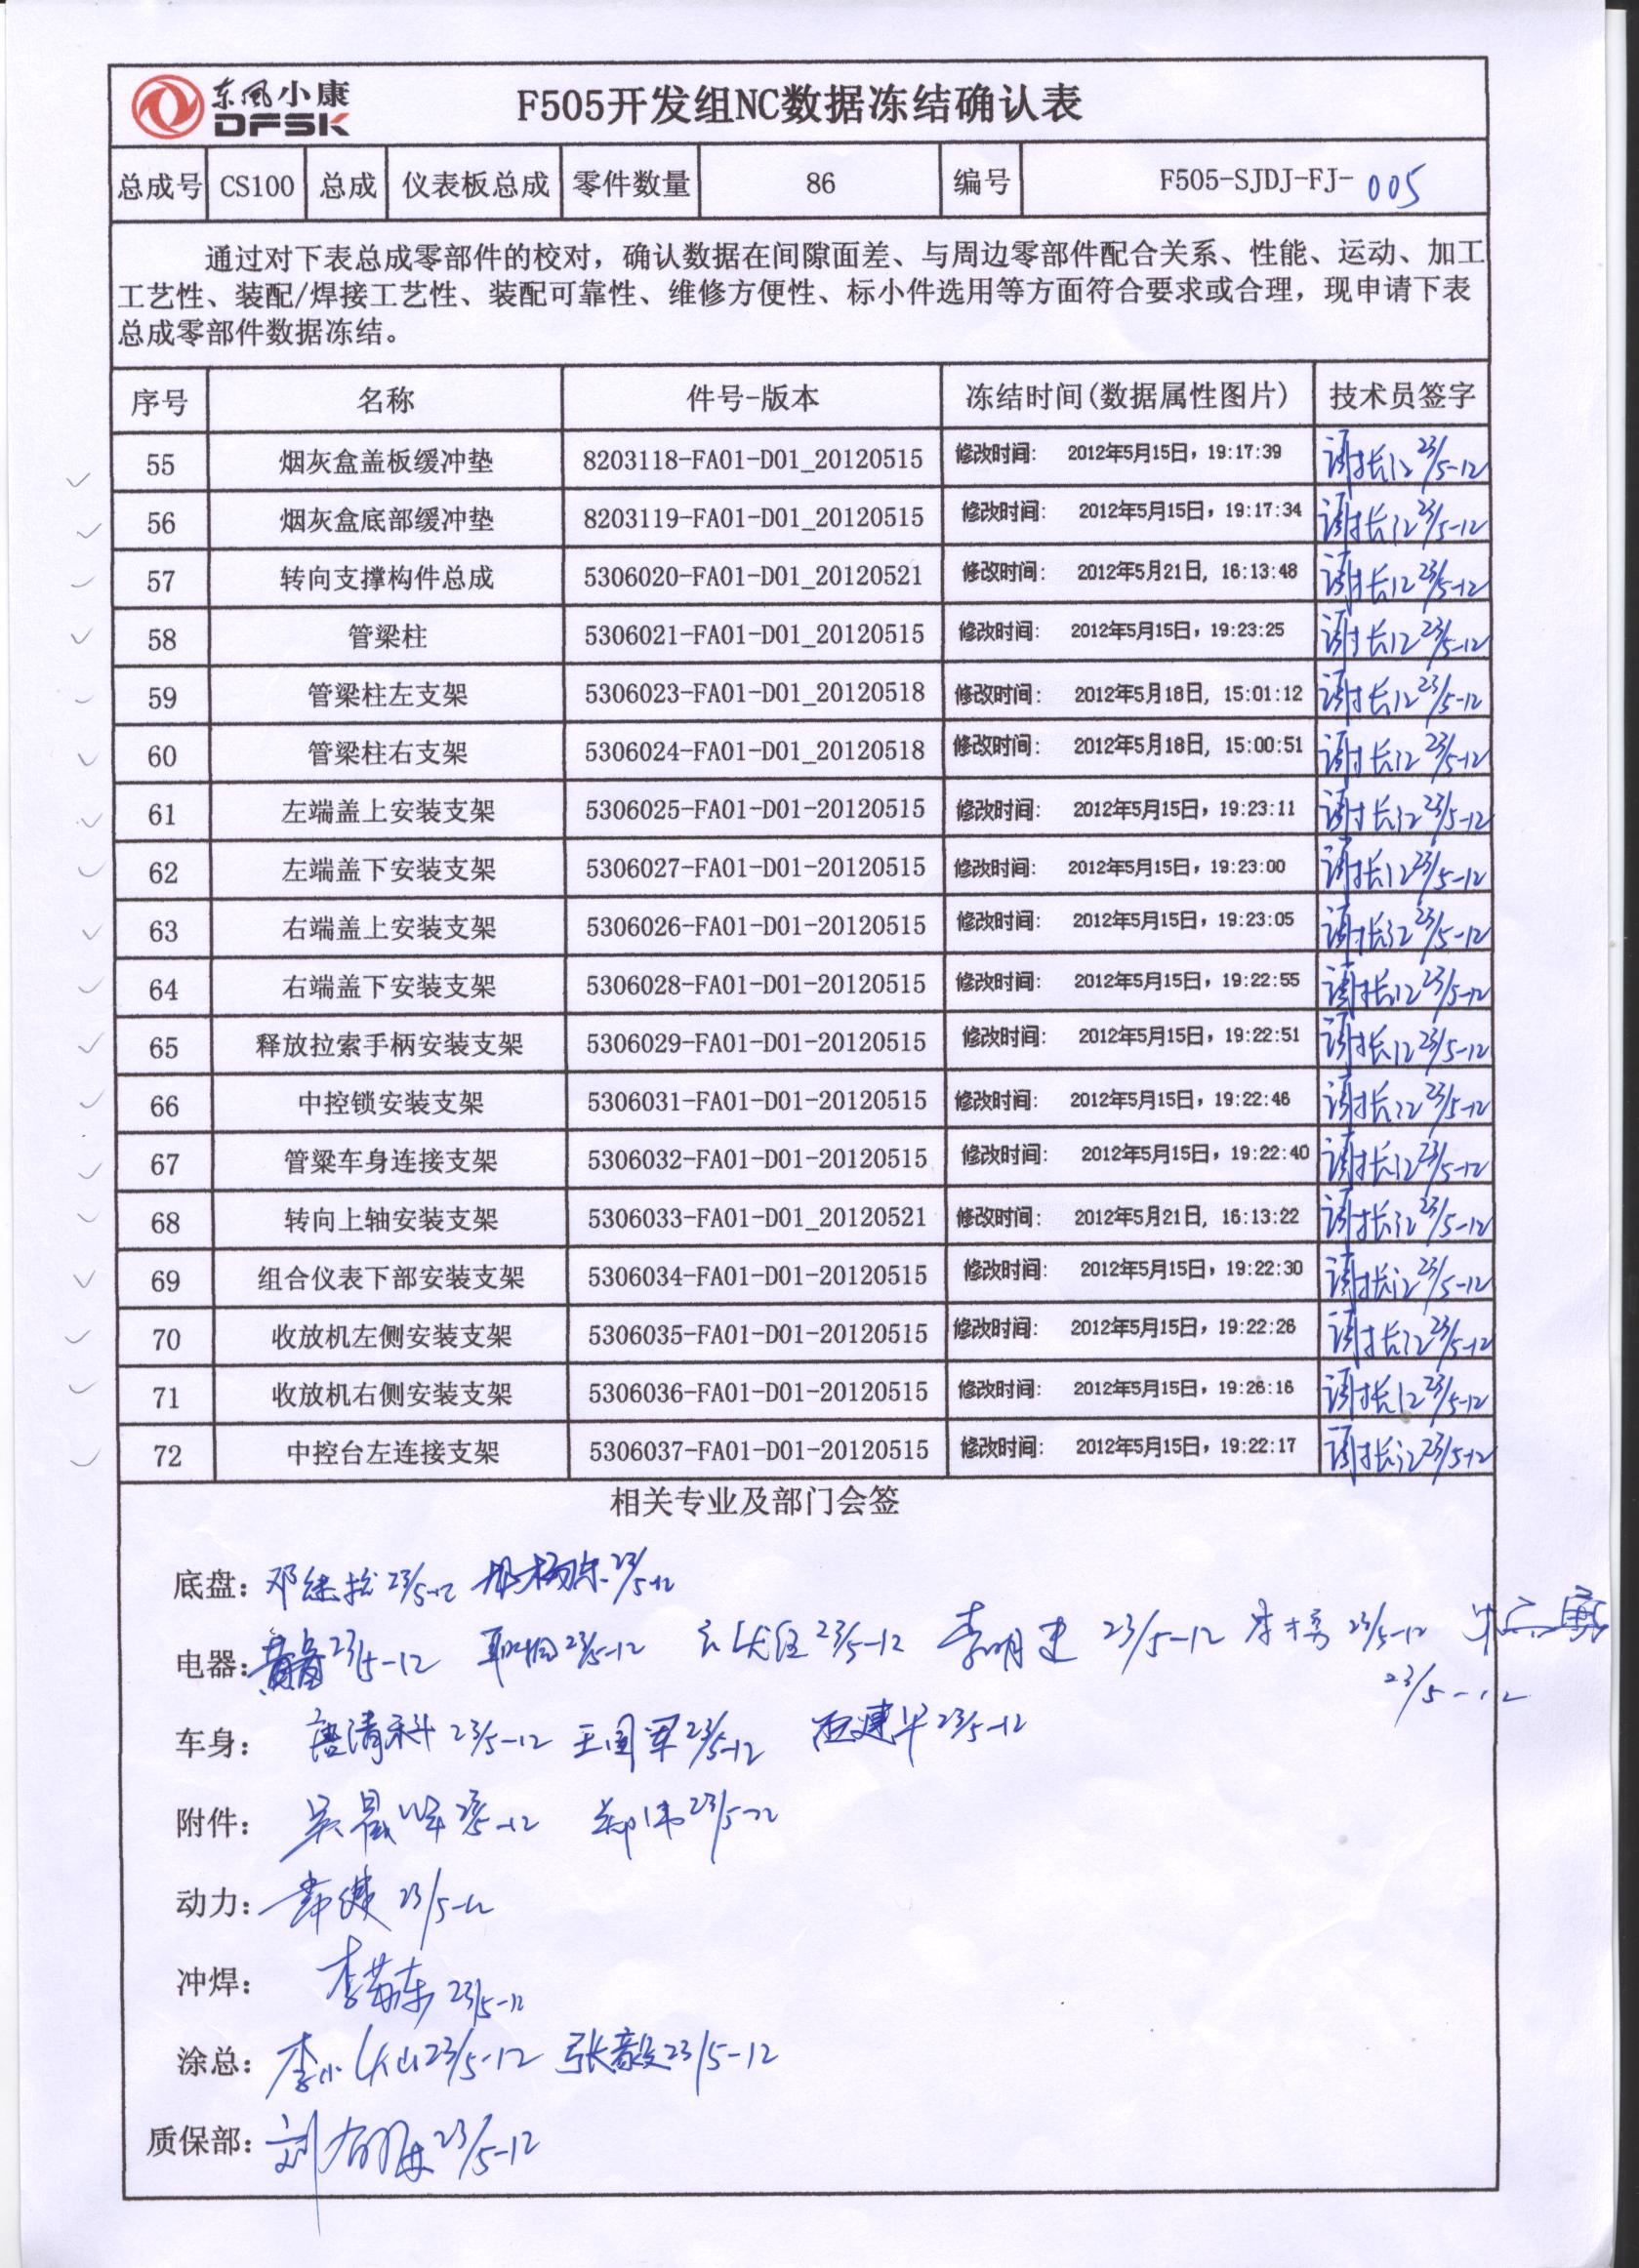 东风小康
DFSK
F505开发组NC数据冻结确认表
总成号 CS100 总成 仪表板总成 零件数量 86 编号 F505-SJDJ-FJ-005
通过对下表总成零部件的校对，确认数据在间隙面差、与周边零部件配合关系、性能、运动、加工
工艺性、装配/焊接工艺性、装配可靠性、维修方便性、标小件选用等方面符合要求或合理，现申请下表
总成零部件数据冻结。
序号 名称 件号-版本 冻结时间(数据属性图片) 技术员签字
55 烟灰盒盖板缓冲垫 8203118-FA01-D01_20120515 修改时间： 2012年5月15日，19:17:39 23/5-12
56 烟灰盒底部缓冲垫 8203119-FA01-D01_20120515 修改时间： 2012年5月15日，19:17:34 23/5-12
57 转向支撑构件总成 5306020-FA01-D01_20120521 修改时间： 2012年5月21日，16:13:48 23/5-12
58 管梁柱 5306021-FA01-D01_20120515 修改时间： 2012年5月15日，19:23:25 23/5-12
59 管梁柱左支架 5306023-FA01-D01_20120518 修改时间： 2012年5月18日，15:01:12 23/5-12
60 管梁柱右支架 5306024-FA01-D01_20120518 修改时间： 2012年5月18日，15:00:51 23/5-12
61 左端盖上安装支架 5306025-FA01-D01-20120515 修改时间： 2012年5月15日，19:23:11 23/5-12
62 左端盖下安装支架 5306027-FA01-D01-20120515 修改时间： 2012年5月15日，19:23:00 23/5-12
63 右端盖上安装支架 5306026-FA01-D01-20120515 修改时间： 2012年5月15日，19:23:05 23/5-12
64 右端盖下安装支架 5306028-FA01-D01-20120515 修改时间： 2012年5月15日，19:22:55 23/5-12
65 释放拉索手柄安装支架 5306029-FA01-D01-20120515 修改时间： 2012年5月15日，19:22:51 23/5-12
66 中控锁安装支架 5306031-FA01-D01-20120515 修改时间： 2012年5月15日，19:22:46 23/5-12
67 管梁车身连接支架 5306032-FA01-D01-20120515 修改时间： 2012年5月15日，19:22:40 23/5-12
68 转向上轴安装支架 5306033-FA01-D01_20120521 修改时间： 2012年5月21日，16:13:22 23/5-12
69 组合仪表下部安装支架 5306034-FA01-D01-20120515 修改时间： 2012年5月15日，19:22:30 23/5-12
70 收放机左侧安装支架 5306035-FA01-D01-20120515 修改时间： 2012年5月15日，19:22:26 23/5-12
71 收放机右侧安装支架 5306036-FA01-D01-20120515 修改时间： 2012年5月15日，19:26:16 23/5-12
72 中控台左连接支架 5306037-FA01-D01-20120515 修改时间： 2012年5月15日，19:22:17 23/5-12
相关专业及部门会签
底盘： 23/5-12 23/5-12
电器： 23/5-12 23/5-12 23/5-12 李明 23/5-12 23/5-12
23/5-12
车身： 唐清科 23/5-12 王国军 23/5-12 建华 23/5-12
附件： 吴晨 23/5-12 郑伟 23/5-12
动力： 23/5-12
冲焊： 23/5-12
涂总： 李小 23/5-12 张毅 23/5-12
质保部： 刘 23/5-12